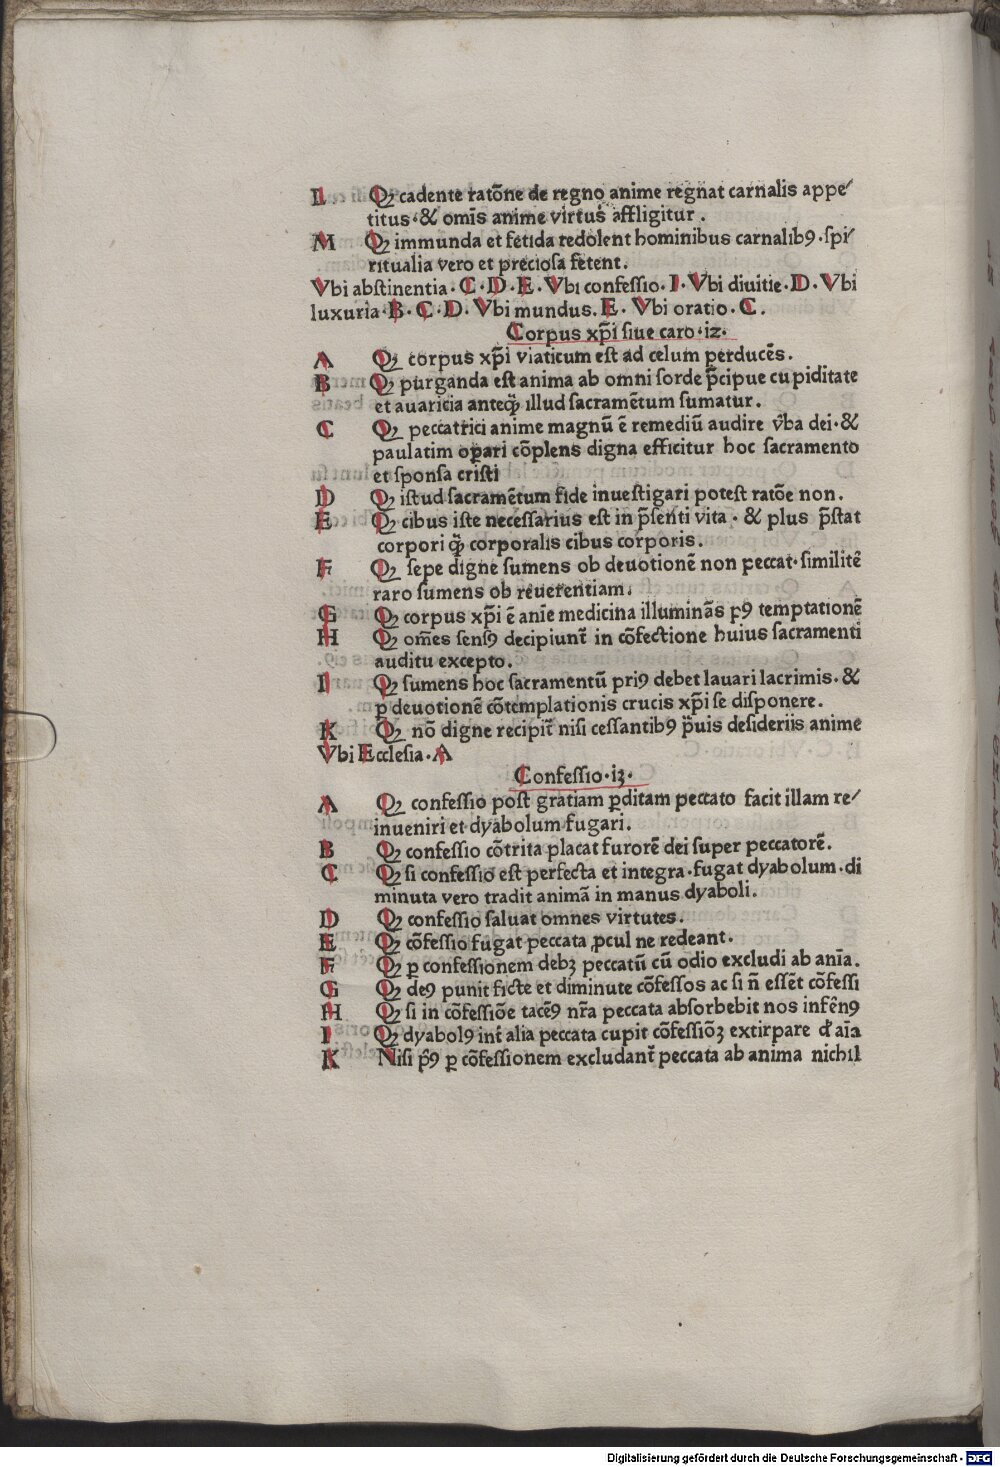 L Qꝫ cadente ratōne de regno anime regnat carnalis appe⸗
titus · & omīs anime virtus affligitur .
M Qꝫ immunda et fetida redolent hominibus carnalibꝰ · spi⸗
ritualia vero et preciosa fetent .
Vbi abstinentia · C · D · E · Vbi confessio · I · Vbi diuitie · D · Vbi
luxuria · B · C · D · Vbi mundus . E · Vbi oratio · C .
Corpus xp̄i siue caro · iz ·
A Qꝫ corpus xp̄i viaticum est ad celum perducēs .
B Qꝫ purganda est anima ab omni sorde p̄cipue cupiditate
et auaricia anteqꝫ̄ illud sacramētum sumatur .
C Qꝫ peccatrici anime magnū ē remediū audire v̄ba dei · &
paulatim oꝑari cōplens digna efficitur hoc sacramento
et sponsa cristi
D Qꝫ istud sacramētum fide inuestigari potest ratōe non .
E Qꝫ cibus iste necessarius est in p̄senti vita · & plus p̄stat
corpori qꝫ̄ corporalis cibus corporis .
F Qꝫ sepe digne sumens ob deuotionē non peccat · similitē
raro sumens ob reuerentiam .
G Qꝫ corpus xp̄i ē anīe medicina illuminās pꝰ temptationē
H Qꝫ om̄es sensꝰ decipiunt̄ in cōfectione huius sacramenti
auditu excepto .
I Qꝫ sumens hoc sacramentū priꝰ debet lauari lacrimis · &
ꝑ deuotionē cōtemplationis crucis xp̄i se disponere .
K Qꝫ nō digne recipit̄ nisi cessantibꝰ p̄uis desideriis anime
Vbi Ecclesia · A
Confessio · iꝫ ·
A Qꝫ confessio post gratiam ꝑditam peccato facit illam re⸗
inueniri et dyabolum fugari .
B Qꝫ confessio cōtrita placat furorē dei super peccatorē .
C Qꝫ si confessio est perfecta et integra · fugat dyabolum · di
minuta vero tradit animā in manus dyaboli .
D Qꝫ confessio saluat omnes virtutes .
E Qꝫ cōfessio fugat peccata ꝓcul ne redeant .
F Qꝫ ꝑ confessionem debꝫ peccatū cū odio excludi ab anīa .
G Qꝫ deꝰ punit ficte et diminute cōfessos ac si n̄ essēt cōfessi
H Qꝫ si in cōfessiōe tacēꝰ nr̄a peccata absorbebit nos infērnꝰ
I Qꝫ dyabolꝰ int̄ alia peccata cupit cōfessiōꝫ extirpare d̄ aīa
K Nisi p̄ꝰ ꝑ cōfessionem excludant̄ peccata ab anima nichil
Digitalisierung gefördert durch die Deutsche Forschungsgemeinschaft - DFG